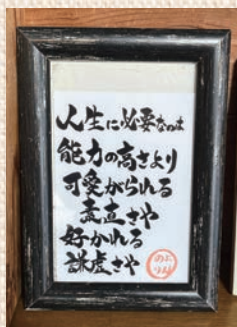 人生に必要なのは
能力の高さより
可愛がられる
素直さや
好かれる
謙虚さや